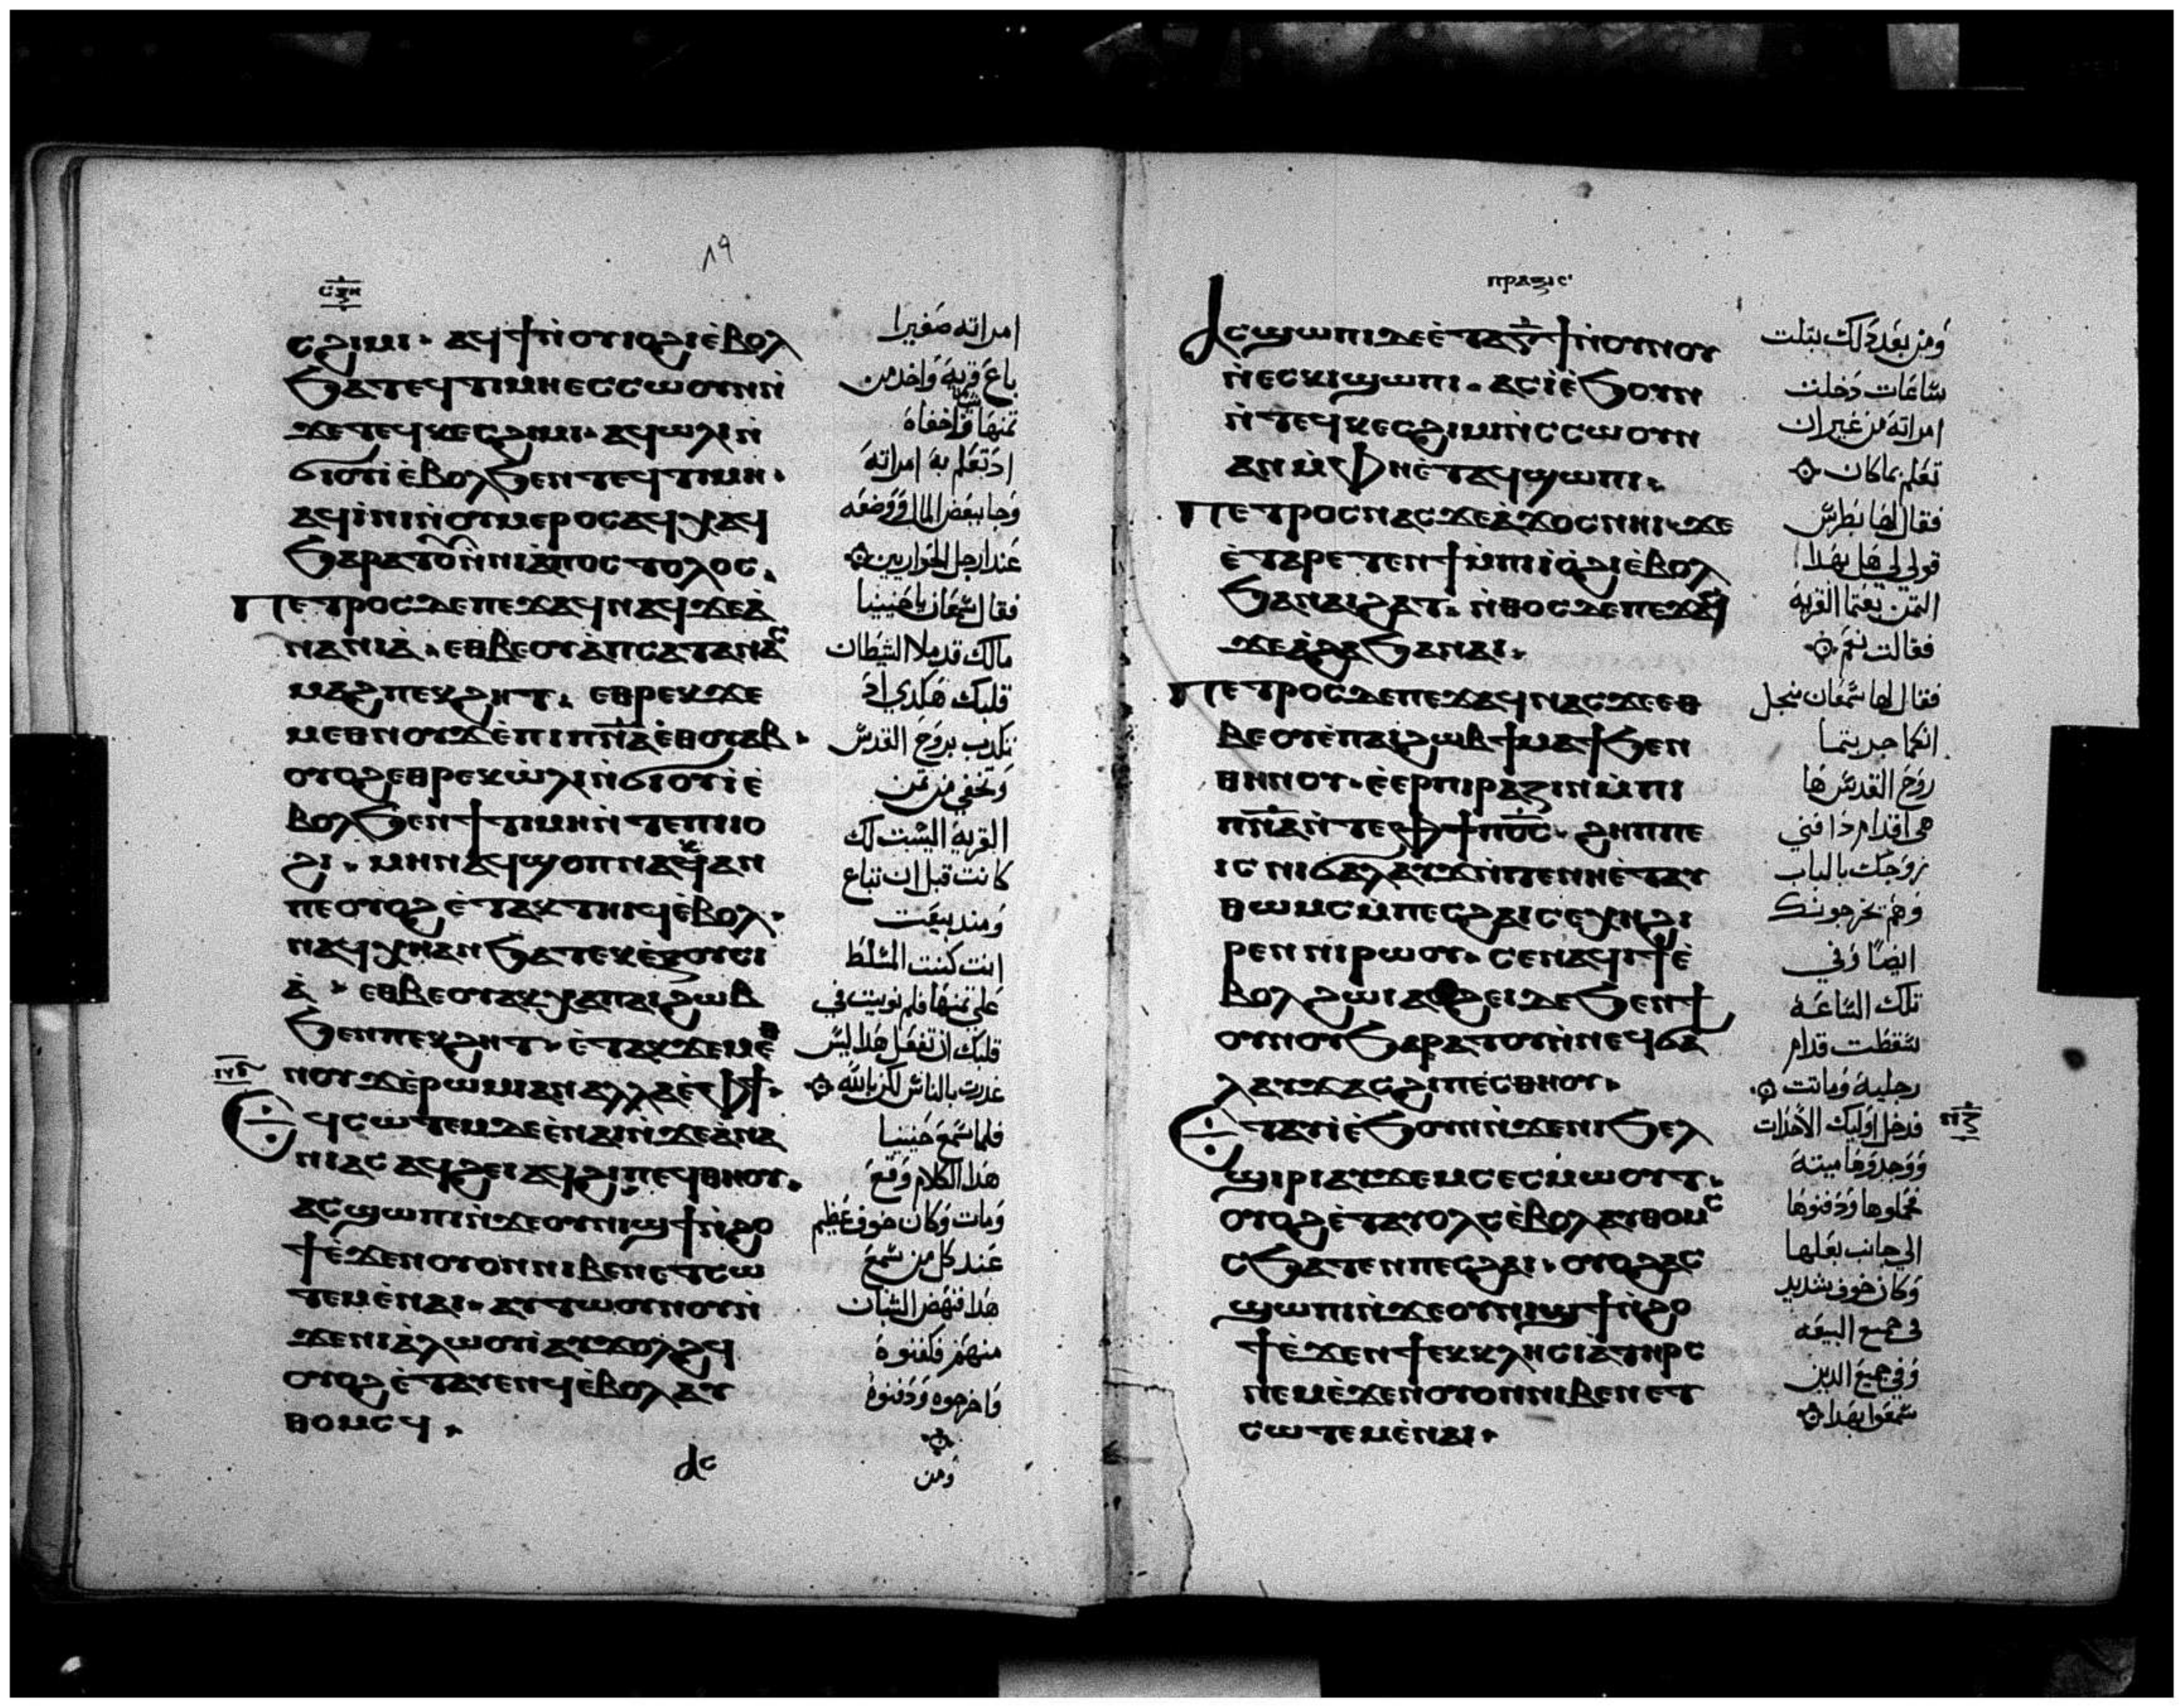 ⲥϩⲓⲙⲓ· ⲁϥϯⲛ̀ⲟⲩⲓⲟϩⲓⲉ̀ⲃⲟⲗ
ϧⲁⲧⲉϥⲧⲓⲙⲏⲉⲥⲥⲱⲟⲩⲛⲛ̀
ϫⲉⲧⲉϥⲕⲉⲥϩⲓⲙⲓ· ⲁϥⲱⲗⲓⲛ̀
ϭⲓⲟⲩⲓⲉ̀ⲃⲟⲗϧⲉⲛⲧⲉϥⲧⲓⲙⲏ·
ⲁϥⲓ̀ⲛⲓⲛ̀ⲟⲩⲙⲉⲣⲟⲥⲁϥⲭⲁϥ
ϧⲁⲣⲁⲧⲟⲩⲛ̀ⲛⲓⲁ̀ⲡⲟⲥⲧⲟⲗⲟⲥ·
ⲡⲉⲧⲣⲟⲥⲇⲉⲡⲉϫⲁϥⲛⲁϥϫⲉⲁ̀
ⲛⲁⲛⲓⲁ̀· ⲉⲑⲃⲉⲟⲩⲁ̀ⲡⲥⲁⲧⲁⲛⲁⲥ
ⲙⲁϩⲡⲉⲕϩⲏⲧ· ⲉⲑⲣⲉⲕϫⲉ
ⲙⲉⲑⲛⲟⲩϫⲉ̀ⲡⲓⲡⲛ̅ⲁ̅ⲉ̀ⲑⲟⲩⲁⲃ·
ⲟⲩⲟϩⲉⲑⲣⲉⲕⲱ̀ⲗⲓⲛ̀ϭⲓⲟⲩⲓⲉ̀
ⲃⲟⲗϧⲉⲛϯⲧⲓⲙⲏⲛ̀ⲧⲉⲡⲓⲓⲟ
ϩⲓ· ⲙⲏⲛⲁϥϣⲟⲡⲛⲁⲕⲁⲛ
ⲡⲉⲟⲩⲟϩⲉ̀ⲧⲁⲕⲧⲏⲓϥⲉ̀ⲃⲟⲗ·
ⲛⲁϥⲭⲏⲁⲛϧⲁⲧⲉⲕⲉ̀ⲝⲟⲩⲥⲓ
ⲁ̀· ⲉⲑⲃⲉⲟⲩⲁⲕⲭⲁⲡⲁⲓϩⲱⲃ
ϧⲉⲛⲡⲉⲕϩⲏⲧ· ⲉ̀ⲧⲁⲕϫⲉⲙⲉⲑ
ⲛⲟⲩϫⲉ̀ⲣⲱⲙⲓⲁⲛⲁⲗⲗⲁⲉ̀ⲫϯ·
ⲉϥⲥⲱⲧⲉⲙⲇⲉⲉ̀ⲛⲁⲓⲛ̀ϫⲉⲁ̀ⲛⲁ
ⲛⲓⲁⲥⲁϥϩⲉⲓⲁϥϩⲓⲡⲉϥⲑⲏⲟⲩ·
ⲁⲥϣⲱⲡⲓⲛ̀ϫⲉⲟⲩⲛⲓϣϯⲛ̀ϩⲟ
ϯⲉ̀ϫⲉⲛⲟⲩⲟⲛⲛⲓⲃⲉⲛⲉⲧⲥⲱ
ⲧⲉⲙⲉ̀ⲛⲁⲓ· ⲁⲩⲧⲱⲟⲩⲛⲟⲩⲛ̀
ϫⲉⲛⲓⲁ̀ⲗⲱⲟⲩⲓ̀ⲁⲩⲕⲟⲗϩϥ
ⲟⲩⲟϩⲉ̀ⲧⲁⲩⲉⲛϥⲉ̀ⲃⲟⲗⲁⲩ
ⲑⲟⲙⲥϥ·
ⲁⲥ
امراته صفيرا
باع قرية واخد من
تمنها واخفاه
اد تعلم به امراته
وجا ببعض المال ووضعه
عند ارجل الحواريين
فقال شمعان يا حنينيا
مالك قد ملا الشيطان
قلبك هكدي اد
تكدب بروح القدس
وتخفي من تمن
القرية اليست لك
كانت قبل ان تباع
ومند بيعت
انت كنت المسلط
علي تمنها فلم نويت في
قلبك ان تفعل هدا ليس
غدرت بالناس لكن بالله
فلما سمع حنينيا
هدا الكلام وقع
ومات وكان خوف عظيم
عند كل من سمع
هدا فنهض الشبان
منهم فكفنوه
واخرجوه ودفنوه
ومن
ⲡⲣⲁⲝⲓⲥ
ⲁⲥϣⲱⲡⲓⲇⲉⲉ̀ⲧⲁⲅ̅ϯⲛ̀ⲟⲩⲛⲟⲩ
ⲛ̀ⲉⲥⲕⲓϣⲱⲡⲓ· ⲁⲥⲓ̀ⲉ̀ϧⲟⲩⲛ
ⲛ̀ⲧⲉϥⲕⲉⲥϩⲓⲙⲓⲛ̀ⲥⲥⲱⲟⲩⲛ
ⲁⲛⲙ̀ⲫⲏⲉ̀ⲧⲁϥϣⲱⲡⲓ·
ⲡⲉⲧⲣⲟⲥⲛⲁⲥϫⲉⲁ̀ϫⲟⲥⲛⲏⲓ· ϫⲉ
ⲉ̀ⲧⲁⲣⲉⲧⲉⲛϯⲙ̀ⲡⲓⲓⲟ̀ϩⲓⲉ̀ⲃⲟⲗ
ϧⲁⲛⲁⲓϩⲁⲧ· ⲛ̀ⲑⲟⲥⲇⲉⲡⲉϫⲁⲥ
ϫⲉⲁ̀ϩⲁϧⲁⲛⲁⲓ·
ⲡⲉⲧⲣⲟⲥⲇⲉⲡⲉϫⲁϥⲛⲁⲥϫⲉⲉⲑ
ⲃⲉⲟⲩⲉ̀ⲡⲁⲓϩⲱⲃϯⲙⲁϯϧⲉⲛ
ⲑⲏⲛⲟⲩ· ⲉ̀ⲉⲣⲡⲓⲣⲁⲍⲓⲛⲙ̀ⲡⲓ
ⲡⲛ̅ⲁ̅ⲛ̀ⲧⲉⲫϯⲡⲟ̅ⲥ̅· ϩⲏⲡⲡⲉ
ⲓⲥⲛⲓϭⲁⲗⲁⲩϫⲛ̀ⲧⲉⲛⲛⲏⲉ̀ⲧⲁⲩ
ⲑⲱⲙⲥⲙ̀ⲡⲉⲥϩⲁⲓⲥⲉⲭⲏϩⲓ
ⲣⲉⲛⲛⲓⲣⲱⲟⲩ· ⲥⲉⲛⲁϥⲓϯⲉ̀
ⲃⲟⲗϩⲱⲓⲁⲥϩⲉⲓⲇⲉϧⲉⲛϯ
ⲟⲩⲛⲟⲩϧⲁⲣⲁⲧⲟⲩⲛ̀ⲛⲉϥϭⲁ
ⲗⲁⲩϫⲁⲥϩⲓⲡⲉⲥⲑⲏⲟⲩ·
ⲉⲧⲁⲩⲓ̀ⲉ̀ϧⲟⲩⲛⲛ̀ϫⲉⲛⲓϧⲉⲗ
ϣⲓⲣⲓⲁⲩϫⲉⲙⲥⲉⲥⲙ̀ⲱⲟⲩⲧ·
ⲟⲩⲟϩⲉ̀ⲧⲁⲩⲟⲗⲥⲉ̀ⲃⲟⲗⲁⲩⲑⲟⲙⲥ
ⲥϧⲁⲧⲉⲛⲡⲉⲥϩⲁⲓ· ⲟⲩⲟϩⲁⲥ
ϣⲱⲡⲓⲛ̀ϫⲉⲟⲩⲛⲓϣϯⲛ̀ϩⲟ
ϯⲉ̀ϫⲉⲛϯⲉⲕⲕⲗⲏⲥⲓⲁ̀ⲧⲏⲣⲥ
ⲛⲉⲙⲉ̀ϫⲉⲛⲟⲩⲟⲛⲛⲓⲃⲉⲛⲉⲧ
ⲥⲱⲧⲉⲙⲉ̀ⲛⲁⲓ·
ومن بعد دلك بتلت
ساعات دخلت
امراته من غير ان
تعلم بما كان
فقال لها بطرس
قولي لي هل بهدا
التمن بعتما القرية
فقالت نعم
فقال لها شمعان من اجل
انكما جربتما
روح القدس ها
هي اقدام دافني
زوجك بالباب
وهم يخرجونك
ايضا وفي
تلك الساعة
سقطت قدام
رجليه وماتت
فدخل اوليك الاحدات
ووجدوها ميتة
فحملوها ودفنوها
الي جانب بعلها
وكان خوف شديد
في جميع البيعة
وفي جميع الدين
سمعوا بهدا